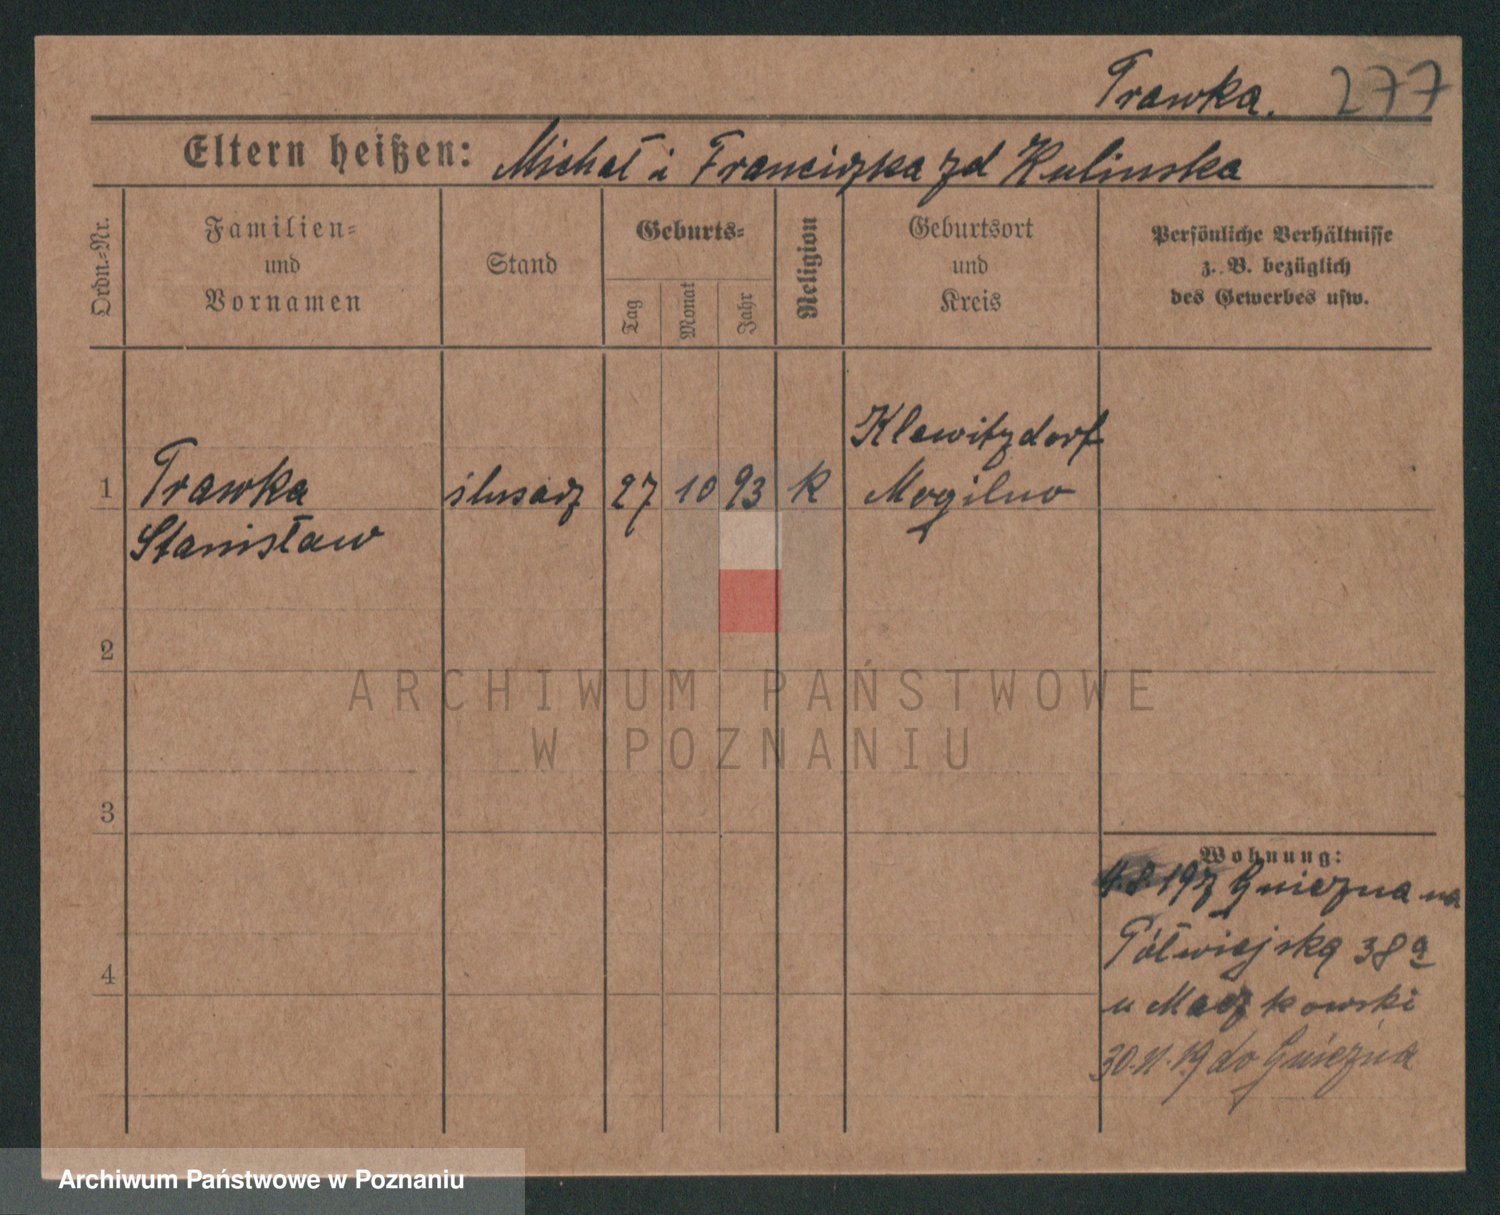 Trawka. 277
Eltern heißen: Michał i Franciszka zd Kulinska
Ordn.-Nr.
Familien-
und
Vornamen
Stand
Geburts-
Tag
Monat
Jahr
Religion
Geburtsort
und
Kreis
Persönliche Verhältnisse
z. B. bezüglich
des Gewerbes usw.
Klewitzdorf
1 Trawka ślusarz 27 10 93 k Mogilno
Stanisław
2
ARCHIWUM PAŃSTWOWE
W POZNANIU
3
4
Wohnung:
Gniezna na
Półwiejską 38a
u Maczkowski
30.11.19 do Gniezna
Archiwum Państwowe w Poznaniu